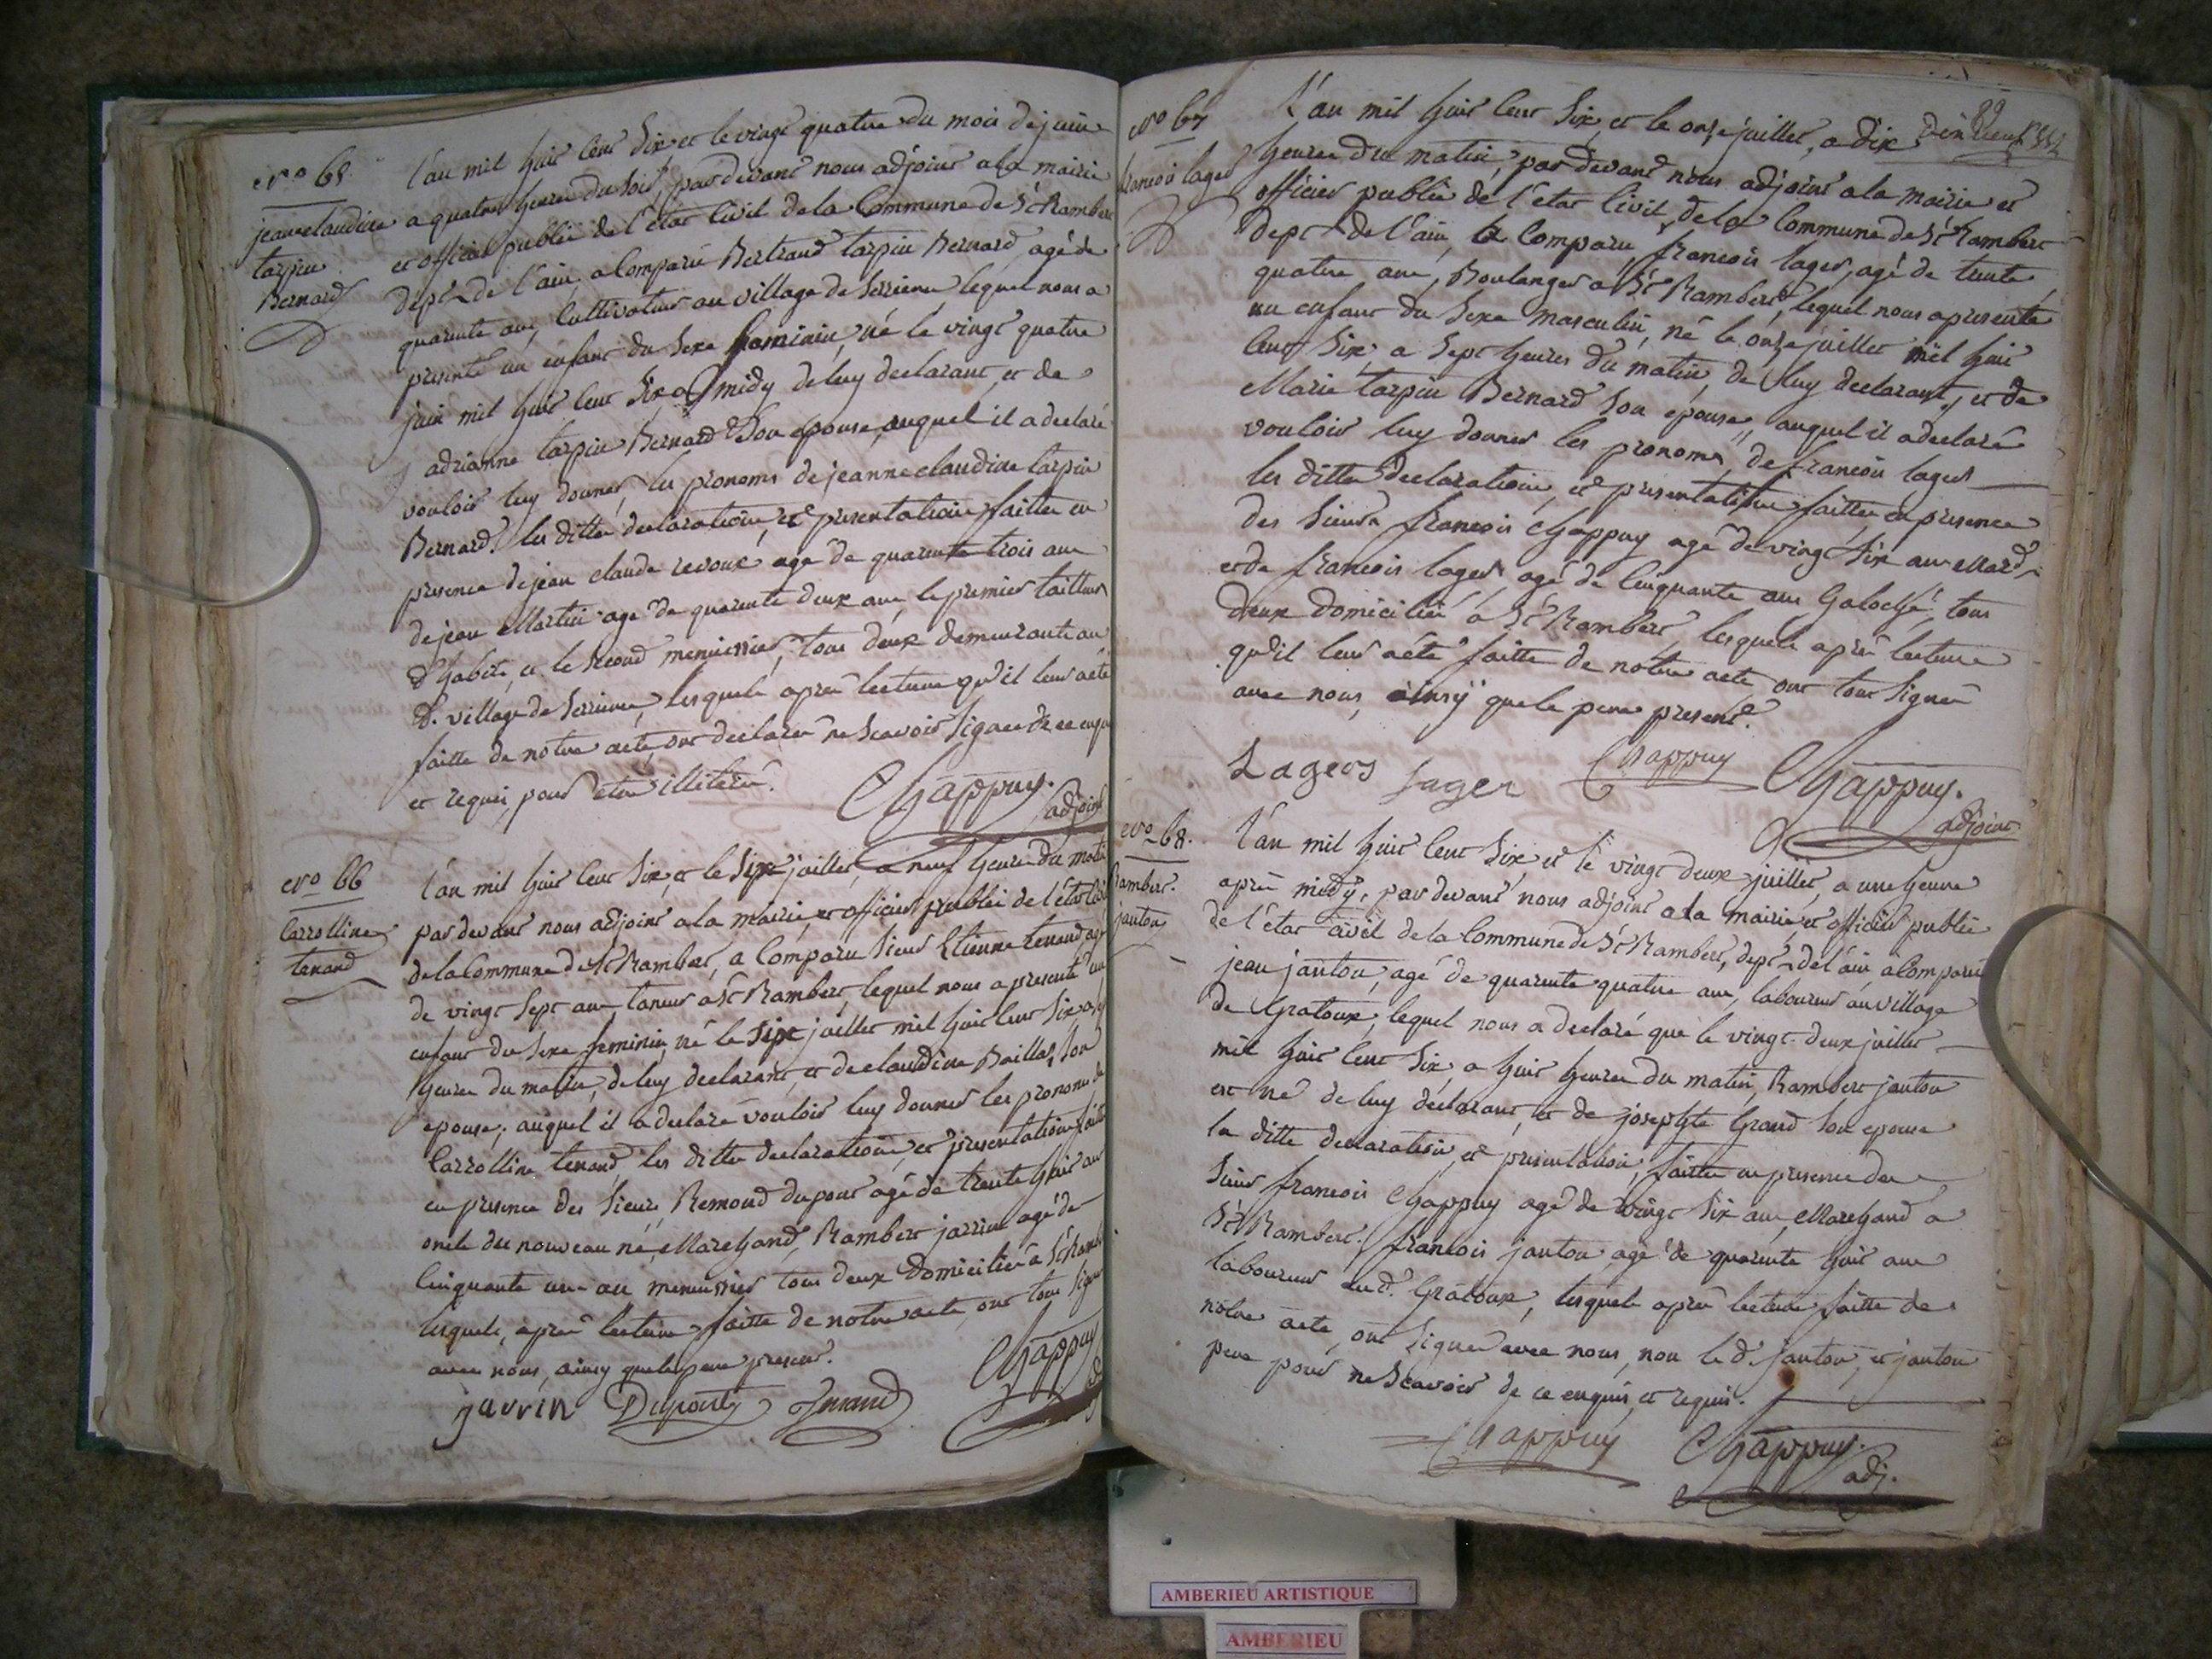 nro 65.
jeanne claudine
tarpin
Bernard
l'an mil huit cent six et le vingt quatre du mois de juin
a quatre heures du soir, par devant nous adjoint a la mairie
et officier public de l'état civil de la Commune de St Rambert
dept de l'ain, a Comparu Bertrand tarpin Bernard, agé de
quarante ans, Cultivateur au village de Serrieres lequel nous a
presenté un enfant du sexe feminin, né le vingt quatre
juin mil huit cent six a midy de luy declarant, et de
adrianne tarpin Bernard son epouse, auquel il a declaré
vouloir luy donner les pronoms de jeanne claudine tarpin
Bernard, les dittes declaration et presentation faittes en
presence de jean claude revoux agé de quarante trois ans
de jean Martin agé de quarante deux ans, le premier tailleur
d'habits, et le second menuissier, tous deux demeurants au
d. village de Serrieres, lesquels après lecture qu'il leur a été
faitte de notre acte, ont declarés ne scavoir signer de ce enquis
et requis, pour etre illiterés.
Chappuy.
adjoint
nro 66
Carrolline
tenand
l'an mil huit cent six, et le six juillet, a neuf heures du matin
par devant nous adjoint a la mairie, et officier public de l'état civil
de la Commune de St Rambert, a Comparu sieur Etienne tenand agé
de vingt sept ans, taneur a St Rambert, lequel nous a presenté un
enfant du sexe feminin, né le six juillet mil huit cent six a
heures du matin, de luy declarant, et de claudine Baillat, son
epouse, auquel il a declaré vouloir luy donner les pronoms de
Carrolline tenand les dittes declaration, et presentation faittes
en presence des sieurs Remond dupont agé de trente huit ans
oncle du nouveau né, Marchand, Rambert jarrin agé de
cinquante un an menuissier tous deux domiciliés a St Rambert
lesquels, après lecture faitte de notre acte, ont tous signés
avec nous, ainsy que le pere present.
jarrin Dupont tenand Chappuy
dix neuf
nro 67
francois lager
L'an mil huit cent six, et le onze juillet, a dix
heures du matin, par devant nous adjoint a la mairie et
officier public de l'état civil, de la Commune de St Rambert
dept de l'ain, a Comparu, francois lager, agé de trente
quatre ans, Boulanger a St Rambert, lequel nous a presenté
un enfant du sexe masculin, né le onze juillet mil huit
cent six, a sept heures du matin, de luy declarant, et de
Marie tarpin Bernard son epouse, auquel il a declaré
vouloir luy donner les pronoms de francois lager
les dittes declaration, et presentation faittes en presence
des sieurs francois Chappuy agé de vingt six ans Mard
et de francois lager, agé de cinquante ans Galoché, tous
deux domiciliés a St Rambert, lesquels après lecture
qu'il leur a été faitte de notre acte, ont tous signés
avec nous, ainsy que le pere present.
Lagers lager Chappuy Chappuy.
adjoint
nro 68.
Rambert.
janton
l'an mil huit cent six, et le vingt deux juillet, a une heure
après midy, par devant nous adjoint a la mairie et officier public
de l'état civil de la Commune de St Rambert, dept de l'ain a Comparu
jean janton, agé de quarante quatre ans, laboureur au village
de Gratoux, lequel nous a declaré que le vingt deux juillet
mil huit cent six, a huit heures du matin, Rambert janton
est né de luy declarant, et de josephte Grand son epouse
la ditte declaration, et presentation, faitte en presence des
sieurs francois Chappuy agé de vingt six ans, Marchand a
St Rambert. francois janton agé de quarante huit ans
laboureur aud. Gratoux, lesquels après lecture faitte de
notre acte, ont signés avec nous, non le d. janton, et janton
pere pour ne scavoir de ce enquis, et requis.
Chappuy Chappuy.
adj.
AMBERIEU ARTISTIQUE
AMBERIEU